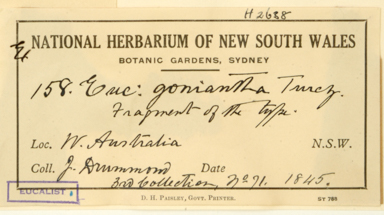 H 2638
NATIONAL HERBARIUM OF NEW SOUTH WALES
BOTANIC GARDENS, SYDNEY
158. Euc: goniantha Turcz.
Fragment of the type.
Loc. W. Australia N.S.W.
Coll. J. Drummond Date
3rd Collection, No 71. 1845.
EUCALIST
D. H. Paisley, Govt. Printer. ST 766